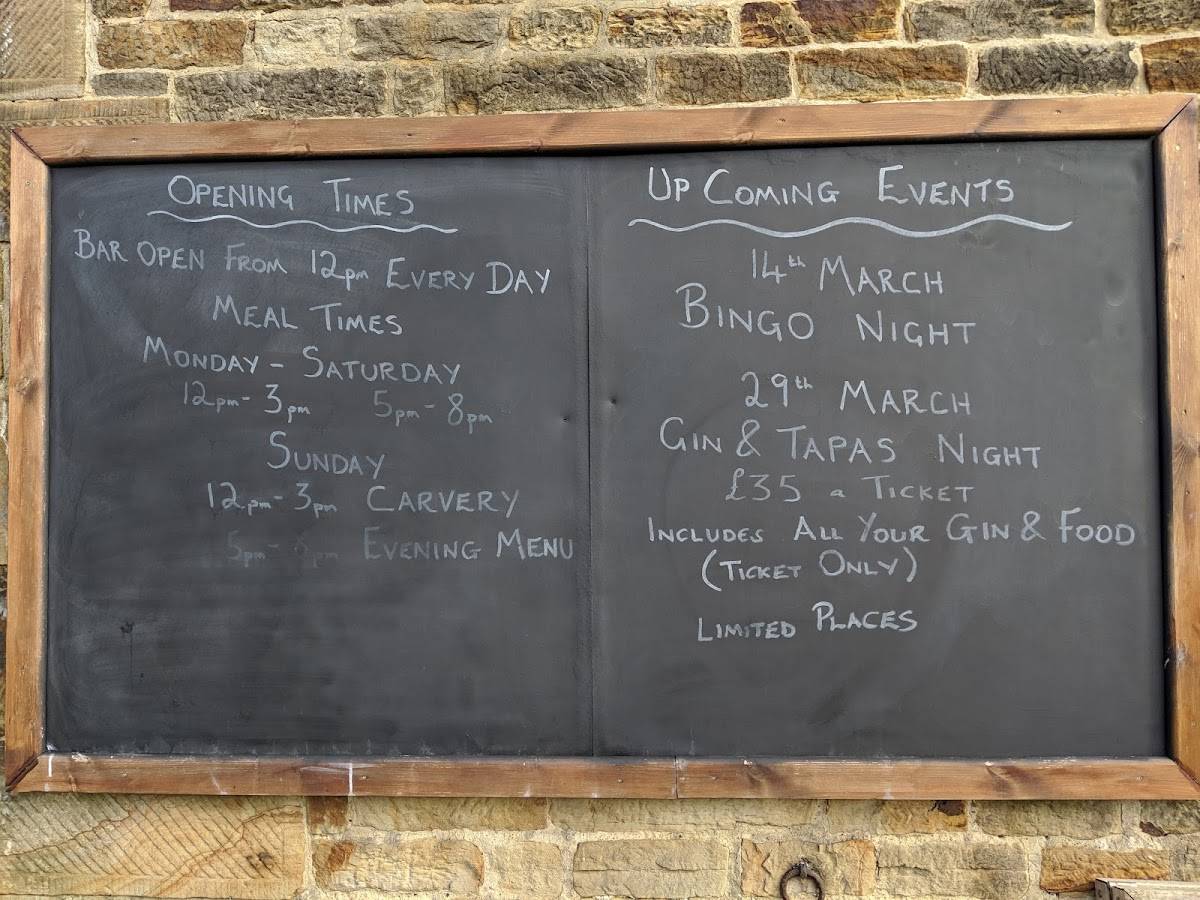 OPENING TIMES
BAR OPEN FROM 12pm EVERY DAY
MEAL TIMES
MONDAY - SATURDAY
12pm - 3pm 5pm - 8pm
SUNDAY
12pm - 3pm CARVERY
5pm - EVENING MENU
UP COMING EVENTS
14th MARCH
BINGO NIGHT
29th MARCH
GIN & TAPAS NIGHT
£35 a TICKET
INCLUDES ALL YOUR GIN & FOOD
(TICKET ONLY)
LIMITED PLACES